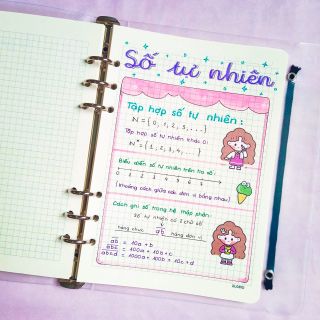 Số tự nhiên
Tập hợp số tự nhiên:
N = {0, 1, 2, 3, ...}
Tập hợp số tự nhiên khác 0:
N* = {1, 2, 3, 4, ...}
Biểu diễn số tự nhiên trên tia số:
0 1 2 3 4 5 6 7
(khoảng cách giữa các đơn vị bằng nhau)
Cách ghi số trong hệ thập phân:
Số tự nhiên có 2 chữ số
hàng chục ab hàng đơn vị
ab = 10a + b
abc = 100a + 10b + c
abcd = 1000a + 100b + 10c + d